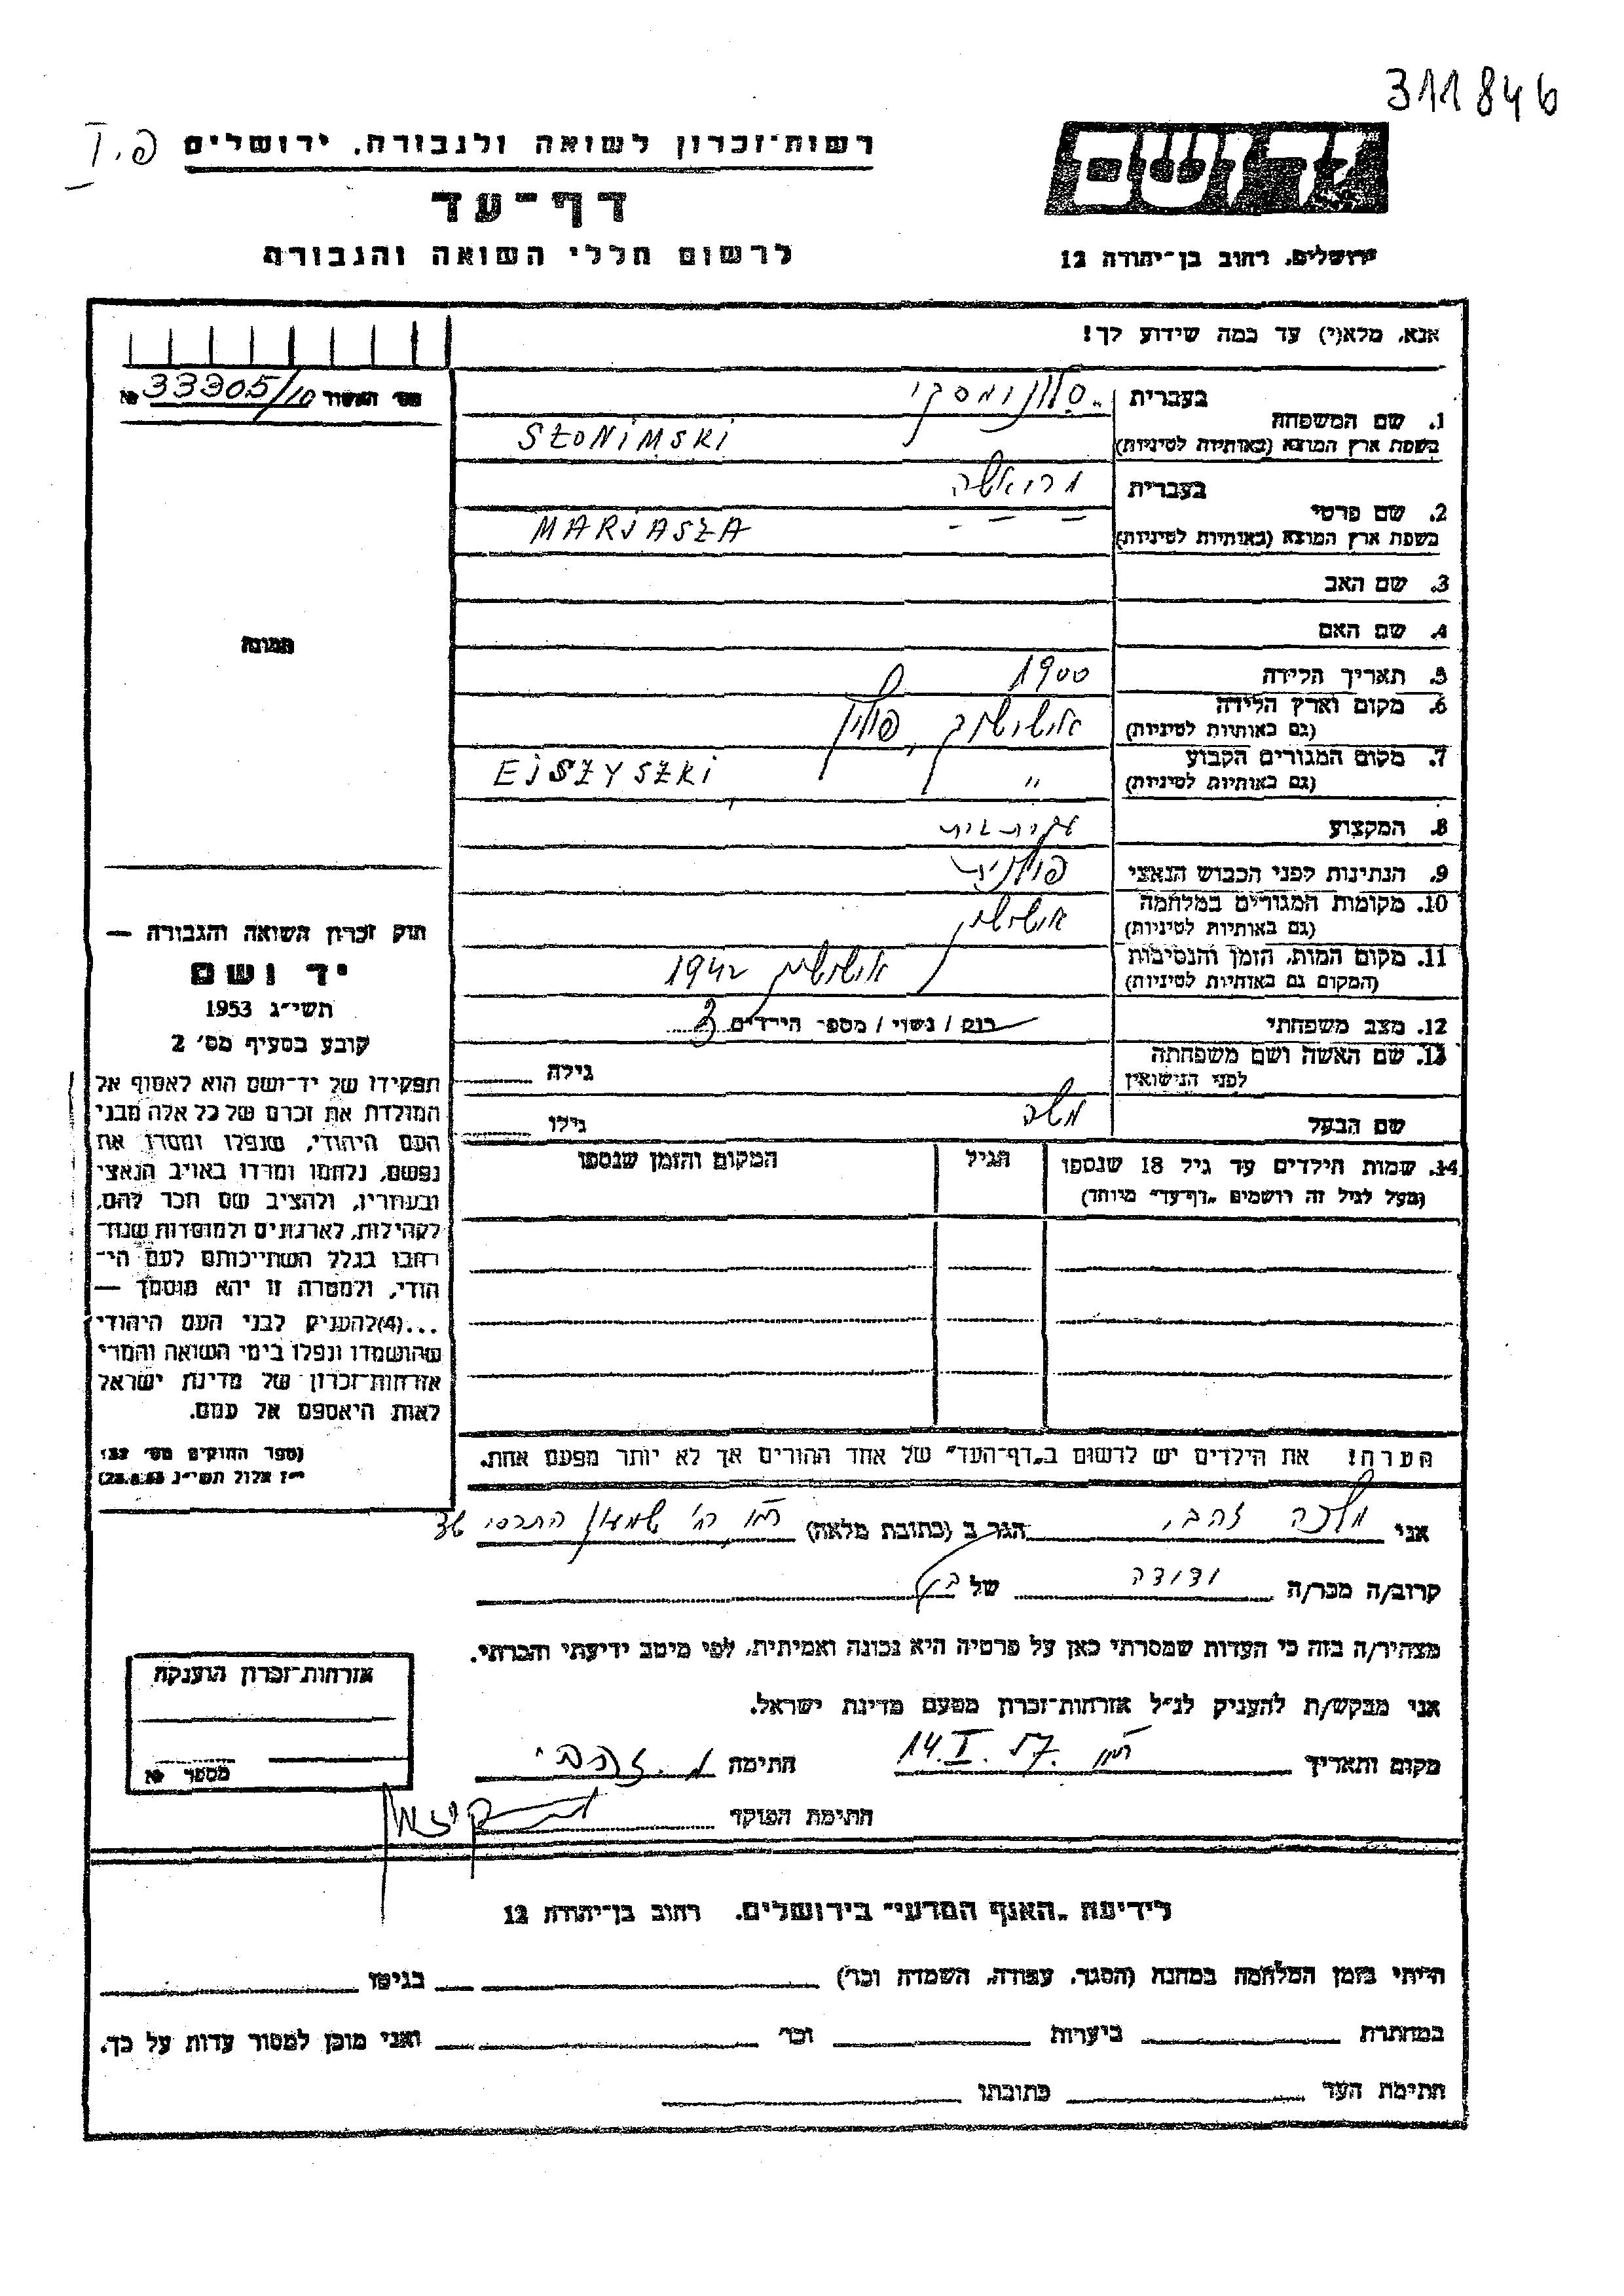 311846
פ. I
רשות־זכרון לשואה ולגבורה, ירושלים
דף־עד
לרשום חללי השואה והגבורה
יד ושם
ירושלים, רחוב בן־יהודה 12
אנא, מלא(י) עד כמה שידוע לך!
מס׳ האשור № 33305/10
1. שם המשפחה
בעברית סלונימסקי
בשפת ארץ המוצא (באותיות לטיניות) SŁONIMSKI
2. שם פרטי
בעברית מריאשה
בשפת ארץ המוצא (באותיות לטיניות) MARJASZA
3. שם האב
4. שם האם
5. תאריך הלידה 1900
6. מקום וארץ הלידה
(גם באותיות לטיניות) אישישוק, פולין
7. מקום המגורים הקבוע
(גם באותיות לטיניות) " EJSZYSZKI
8. המקצוע עקרת בית
9. הנתינות לפני הכבוש הנאצי פולנית
10. מקומות המגורים במלחמה
(גם באותיות לטיניות) אישישוק
11. מקום המות, הזמן והנסיבות
(המקום גם באותיות לטיניות) אישישוק 1942
12. מצב משפחתי רוק / נשוי / מספר הילדים 3
13. שם האשה ושם משפחתה
לפני הנישואין גילה
שם הבעל משה גילו
14. שמות הילדים עד גיל 18 שנספו
(מעל לגיל זה רושמים „דף־עד״ מיוחד)
הגיל
המקום והזמן שנספו
תמונה
חוק זכרון השואה והגבורה —
יד ושם
תשי״ג 1953
קובע בסעיף מס׳ 2
תפקידו של יד־ושם הוא לאסוף אל
המולדת את זכרם של כל אלה מבני
העם היהודי, שנפלו ומסרו את
נפשם, נלחמו ומרדו באויב הנאצי
ובעוזריו, ולהציב שם וזכר להם,
לקהילות, לארגונים ולמוסדות שנח־
רבו בגלל השתייכותם לעם הי־
הודי, ולמטרה זו יהא מוסמך —
...(4)להעניק לבני העם היהודי
שהושמדו ונפלו בימי השואה והמרי
אזרחות־זכרון של מדינת ישראל
לאות היאספם אל עמם.
(ספר החוקים מס׳ 132
י״ז אלול תשי״ג 28.8.53)
הערה! את הילדים יש לרשום ב„דף־העד״ של אחד ההורים אך לא יותר מפעם אחת.
אני מלכה זהבי הגר ב (כתובת מלאה) רמו רח׳ שמעון התרסי
קרוב/ה מכר/ה דודה של
מצהיר/ה בזה כי העדות שמסרתי כאן על פרטיה היא נכונה ואמיתית, לפי מיטב ידיעתי והכרתי.
אני מבקש/ת להעניק לנ״ל אזרחות־זכרון מטעם מדינת ישראל.
מקום ותאריך 14.I.57 חתימה מ. זהבי
חתימת הפוקד
אזרחות־זכרון הוענקה
מספר №
לידיעת „האגף המדעי״ בירושלים, רחוב בן־יהודה 12
הייתי בזמן המלחמה במחנה (הסגר, עבודה, השמדה וכו׳) בגיטו
במחתרת ביערות וכו׳ ואני מוכן למסור עדות על כך.
חתימת העד כתובתו